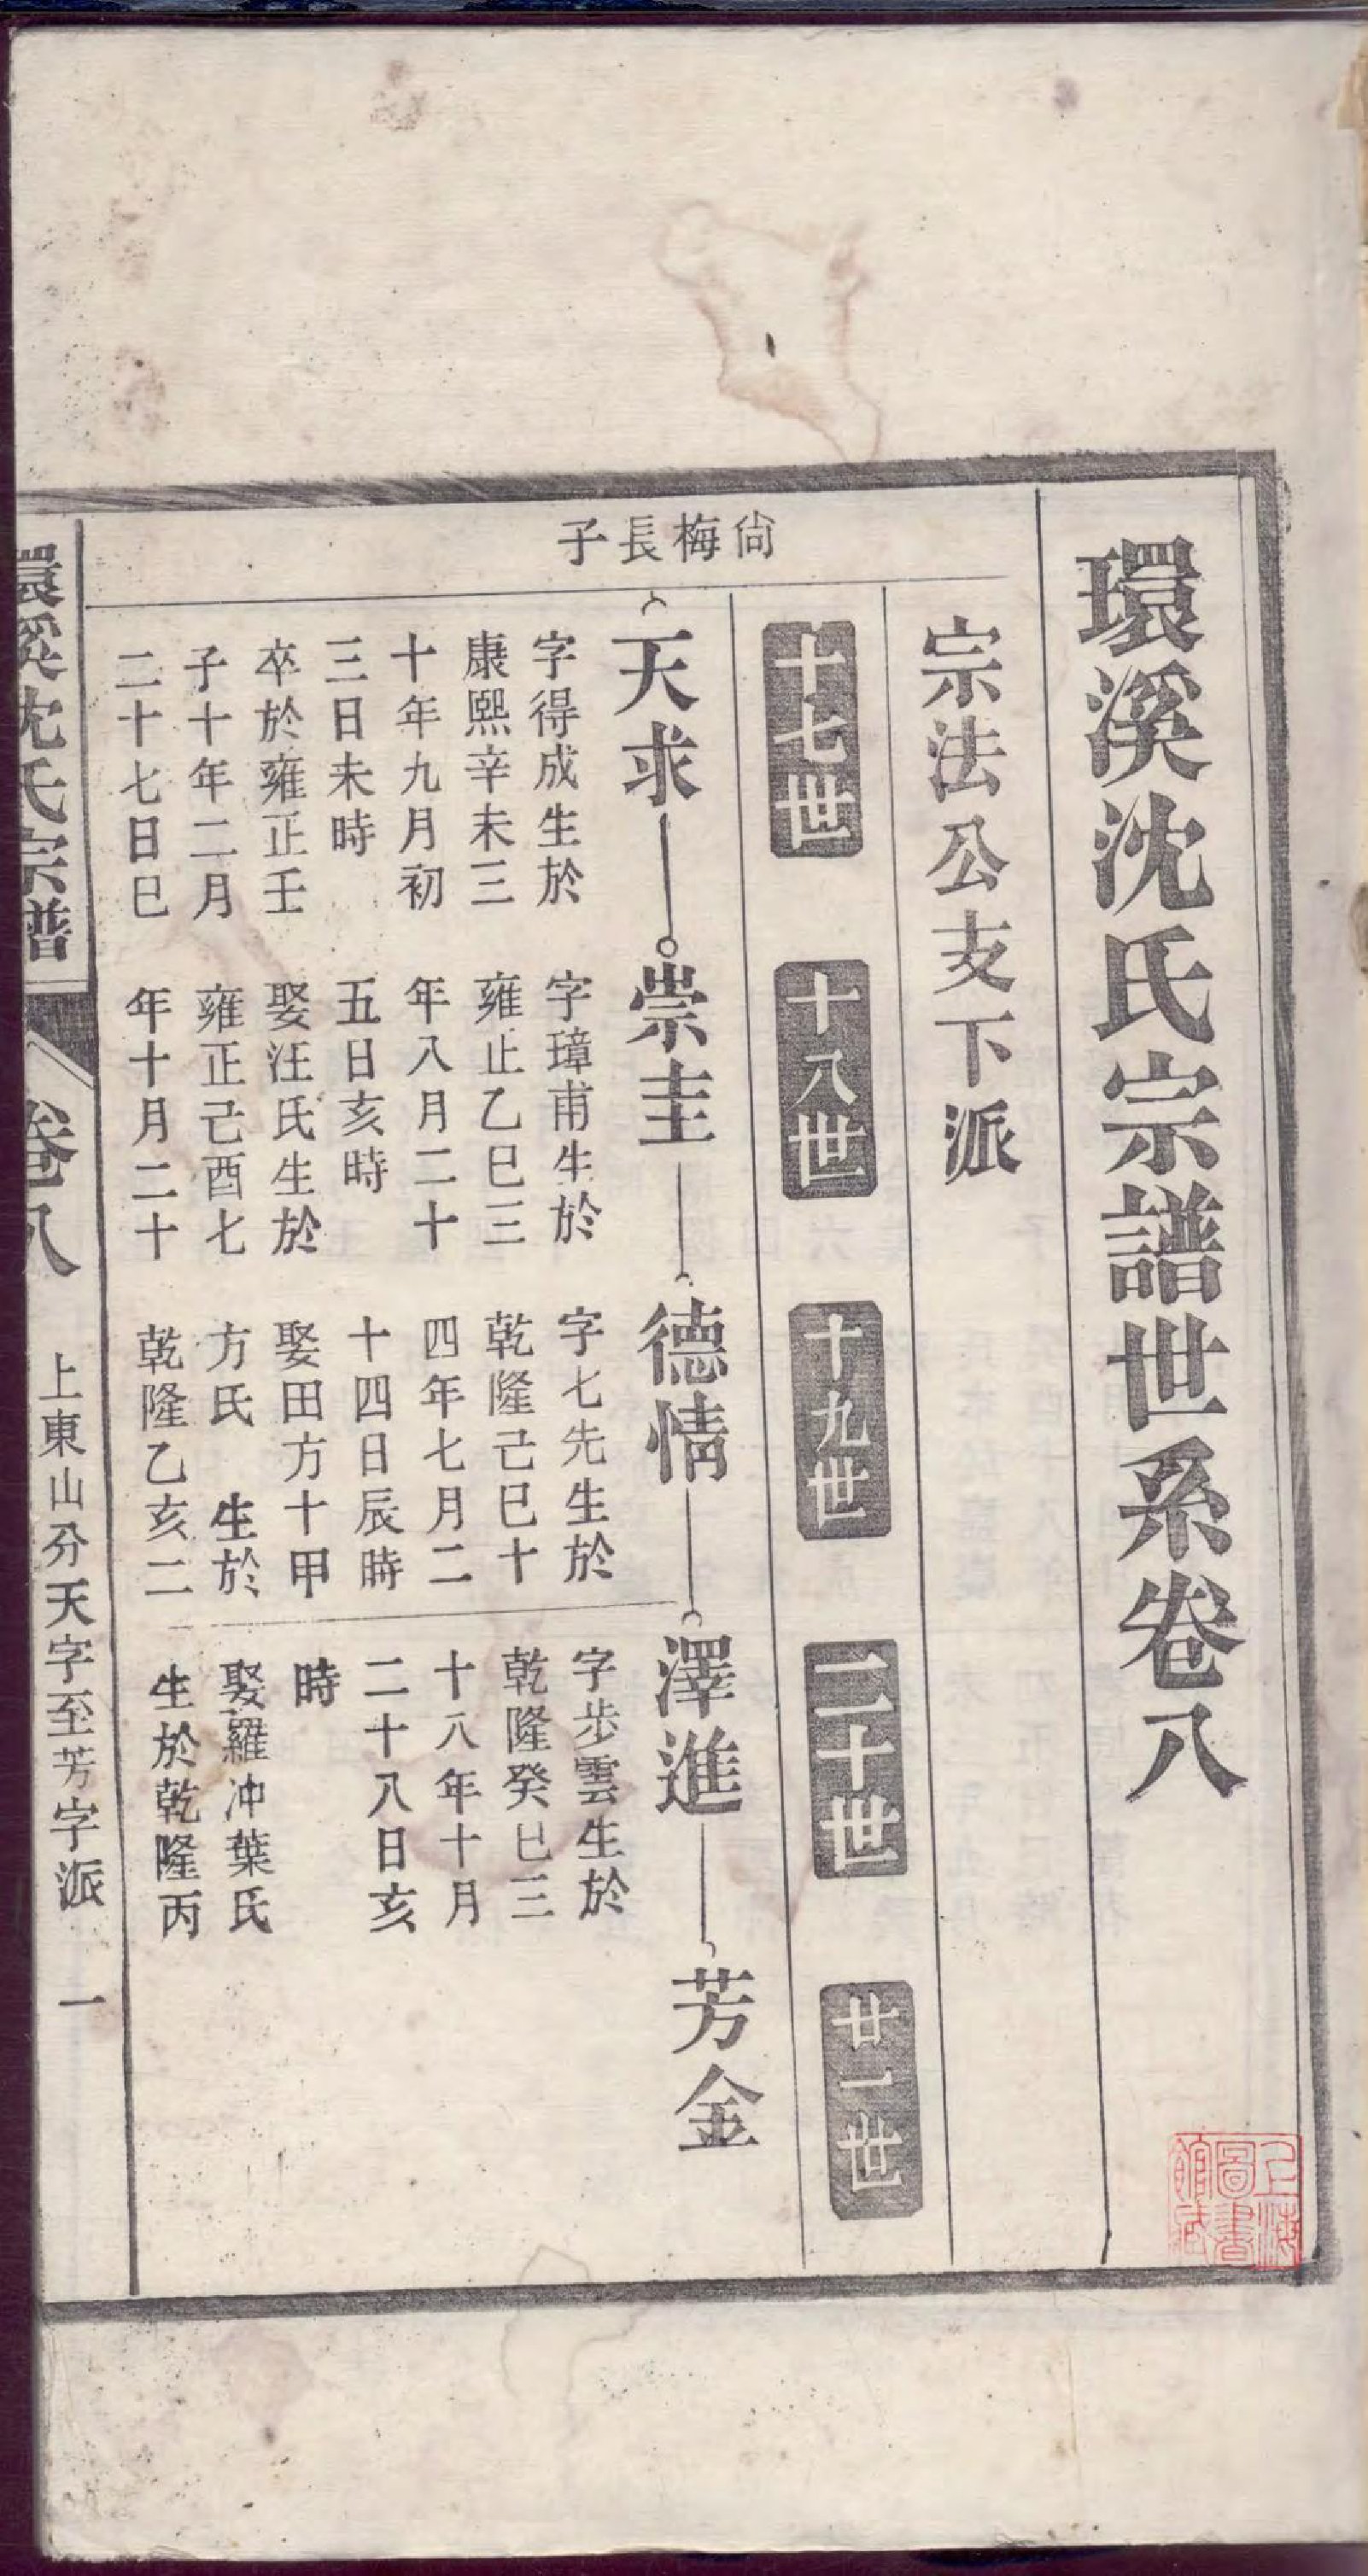 環溪沈氏宗譜世系卷八
宗法公支下派
十七世
十八世
十九世
二十世
廿一世
尙梅長子
天求
字得成生於
康熙辛未三
十年九月初
三日未時
卒於雍正壬
子十年二月
二十七日巳
崇圭
字璋甫生於
雍正乙巳三
年八月二十
五日亥時
娶汪氏生於
雍正己酉七
年十月二十
德情
字七先生於
乾隆己巳十
四年七月二
十四日辰時
娶田方十甲
方氏　生於
乾隆乙亥二
澤進
字步雲生於
乾隆癸巳三
十八年十月
二十八日亥
時
娶羅冲葉氏
生於乾隆丙
芳金
環溪沈氏宗譜
卷八
上東山分天字至芳字派
一
上海圖書館藏